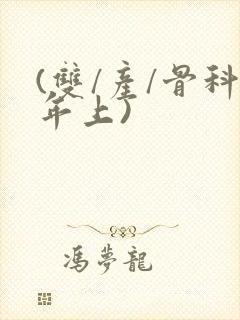 (雙/產/骨科
年上)
馮夢龍